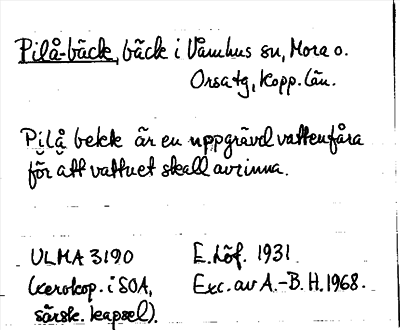 Pilå-bäck, bäck i Våmhus sn, Mora o.
Orsa tg, Kopp. län.
Pi̮lå̮ bekk är en uppgrävd vattenfåra
för att vattnet skall avrinna.
ULMA 3190
(xerokop. i SOA,
särsk. kapsel).
E. Löf. 1931
Exc. av A.-B. H. 1968.